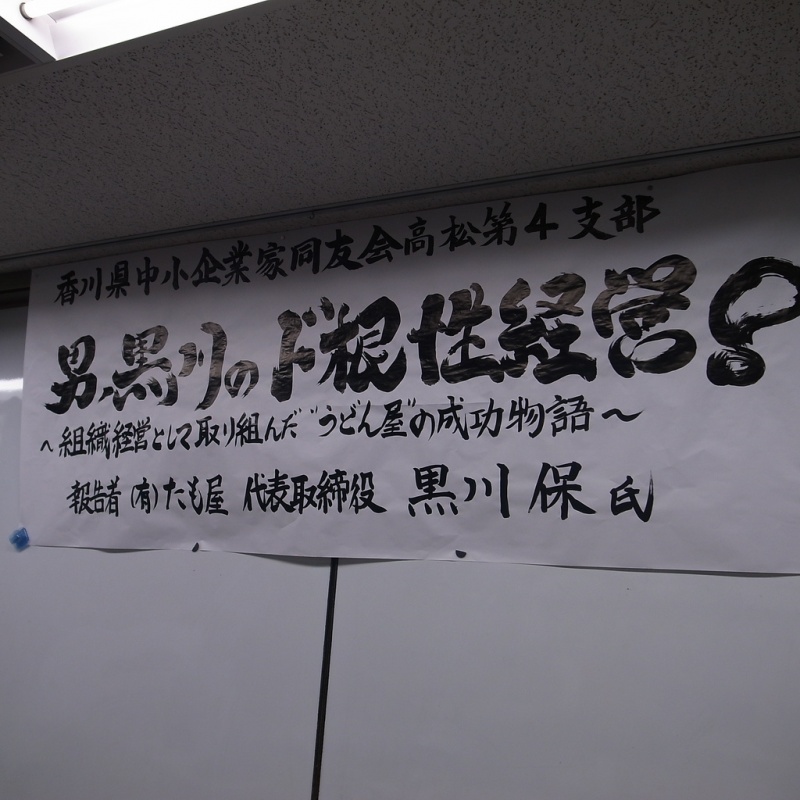 香川県中小企業家同友会高松第4支部
男、黒川のド根性経営?
~組織経営として取り組んだ"うどん屋"の成功物語~
報告者(有)たも屋 代表取締役 黒川保氏